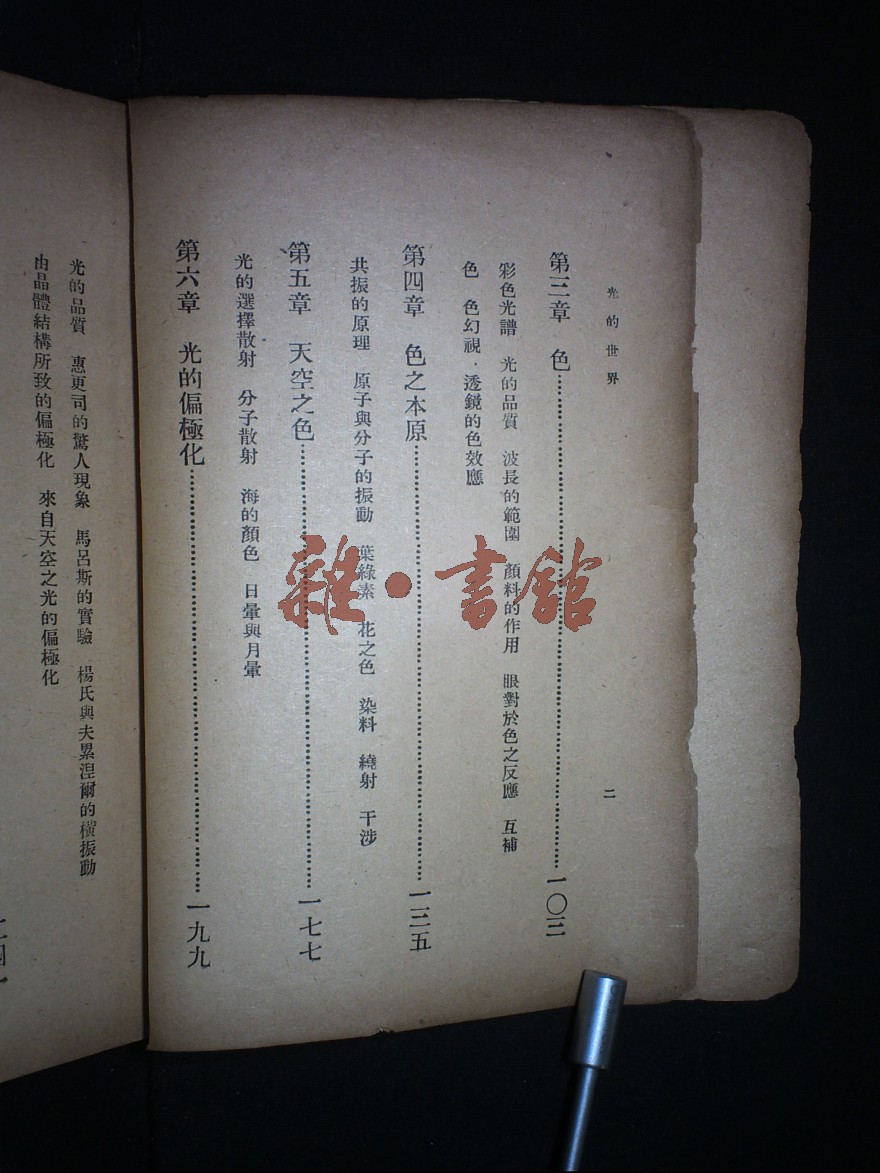 光的世界
二
第三章 色……一〇三
彩色光譜 光的品質 波長的範圍 顏料的作用 眼對於色之反應 互補
色 色幻視 透鏡的色效應
第四章 色之本原……一三五
共振的原理 原子與分子的振動 葉綠素 花之色 染料 繞射 干涉
第五章 天空之色……一七七
光的選擇散射 分子散射 海的顏色 日暈與月暈
第六章 光的偏極化……一九九
光的品質 惠更司的驚人現象 馬呂斯的實驗 楊氏與夫累涅爾的橫振動
由晶體結構所致的偏極化 來自天空之光的偏極化
雜·書館